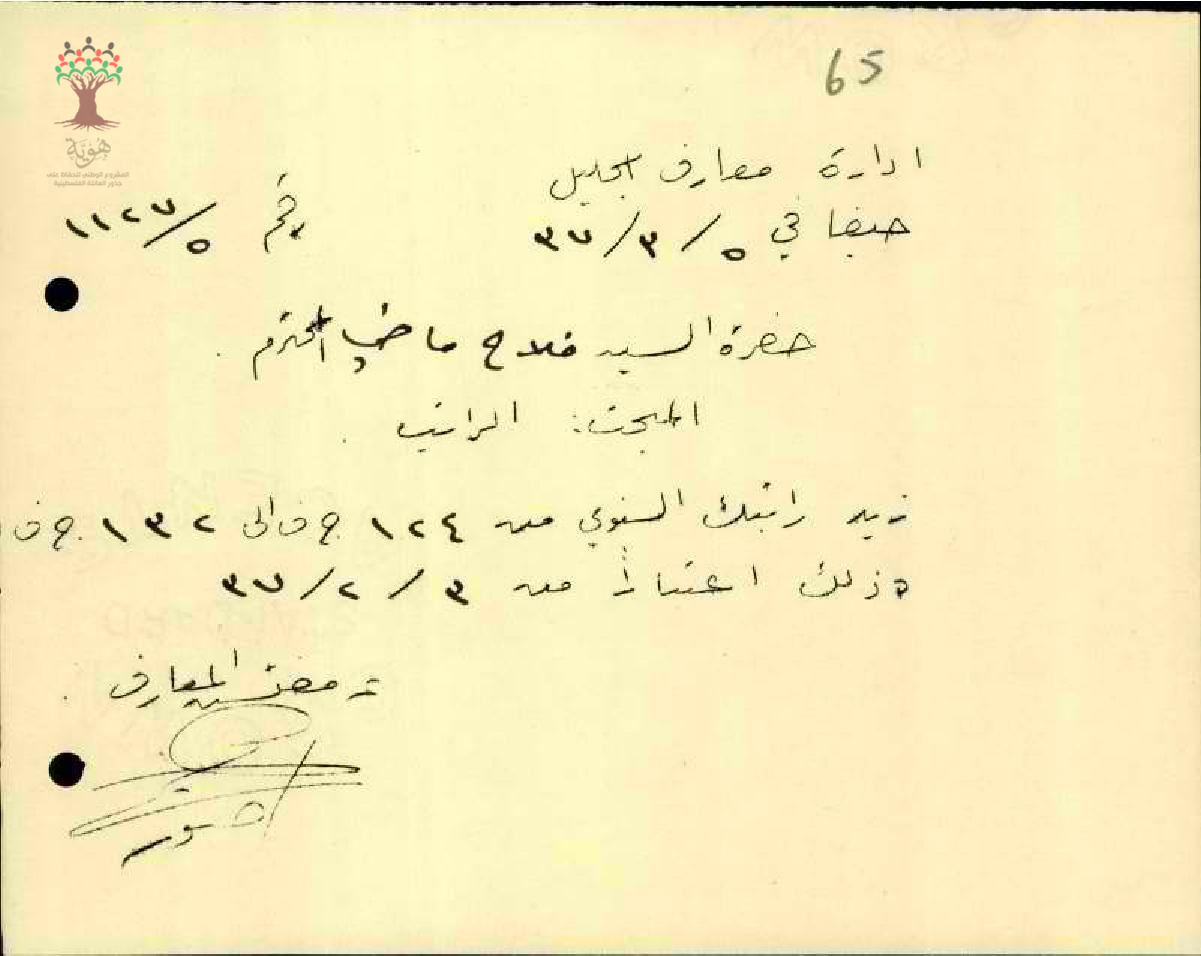 65
هُوِيَّة
المشروع الوطني للحفاظ على
جذور العائلة الفلسطينية
ادارة معارف الجليل
حيفا في ٥/٣/٣٧ رقم ١١٢٧/٥
حضرة السيد فلاح ماضي المحترم.
المبحث: الراتب.
زيد راتبك السنوي من ١٢٤ ج ف الى ١٣٢ ج ف
وذلك اعتباراً من ٣/٢/٣٧
مفتش المعارف.